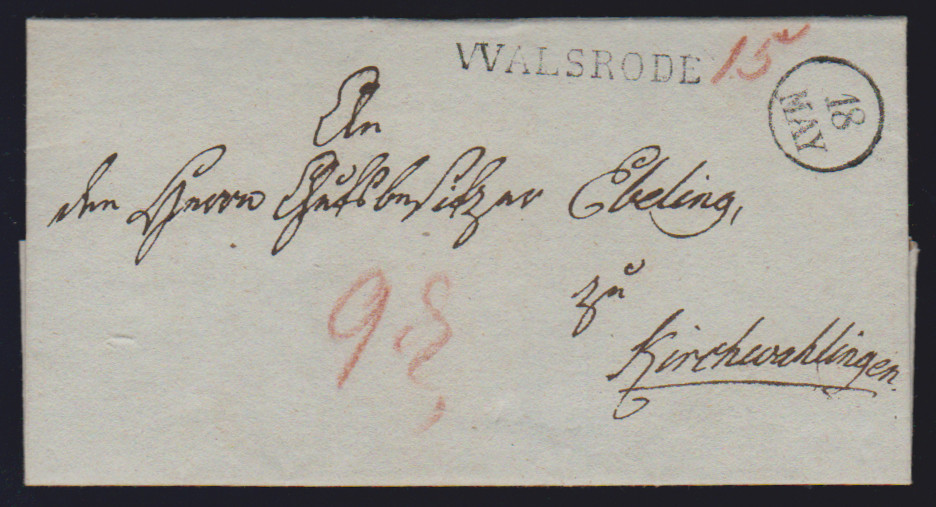 WALSRODE 15
18
MAY
An
den Herrn Gutsbesitzer Ebeling,
zu
Kirchwahlingen.
9